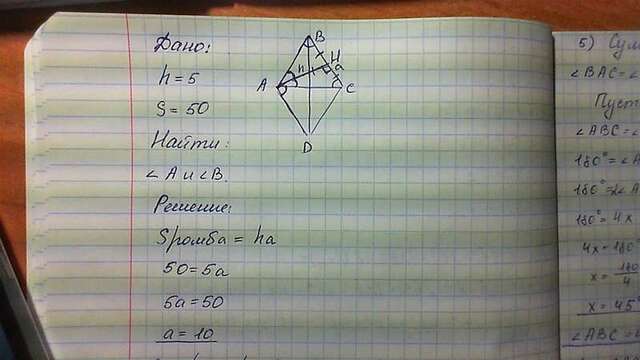 Дано:
h = 5
S = 50
Найти:
∠A и ∠B.
Решение:
Sромба = ha
50 = 5a
5a = 50
a = 10
B
H
h
a
A
C
D
5) Сум
∠BAC = ∠
Пуст
∠ABC = ∠
180° = ∠A
180° = 2∠A
180° = 4x
4x = 180
x = 180/4
x = 45°
∠ABC =